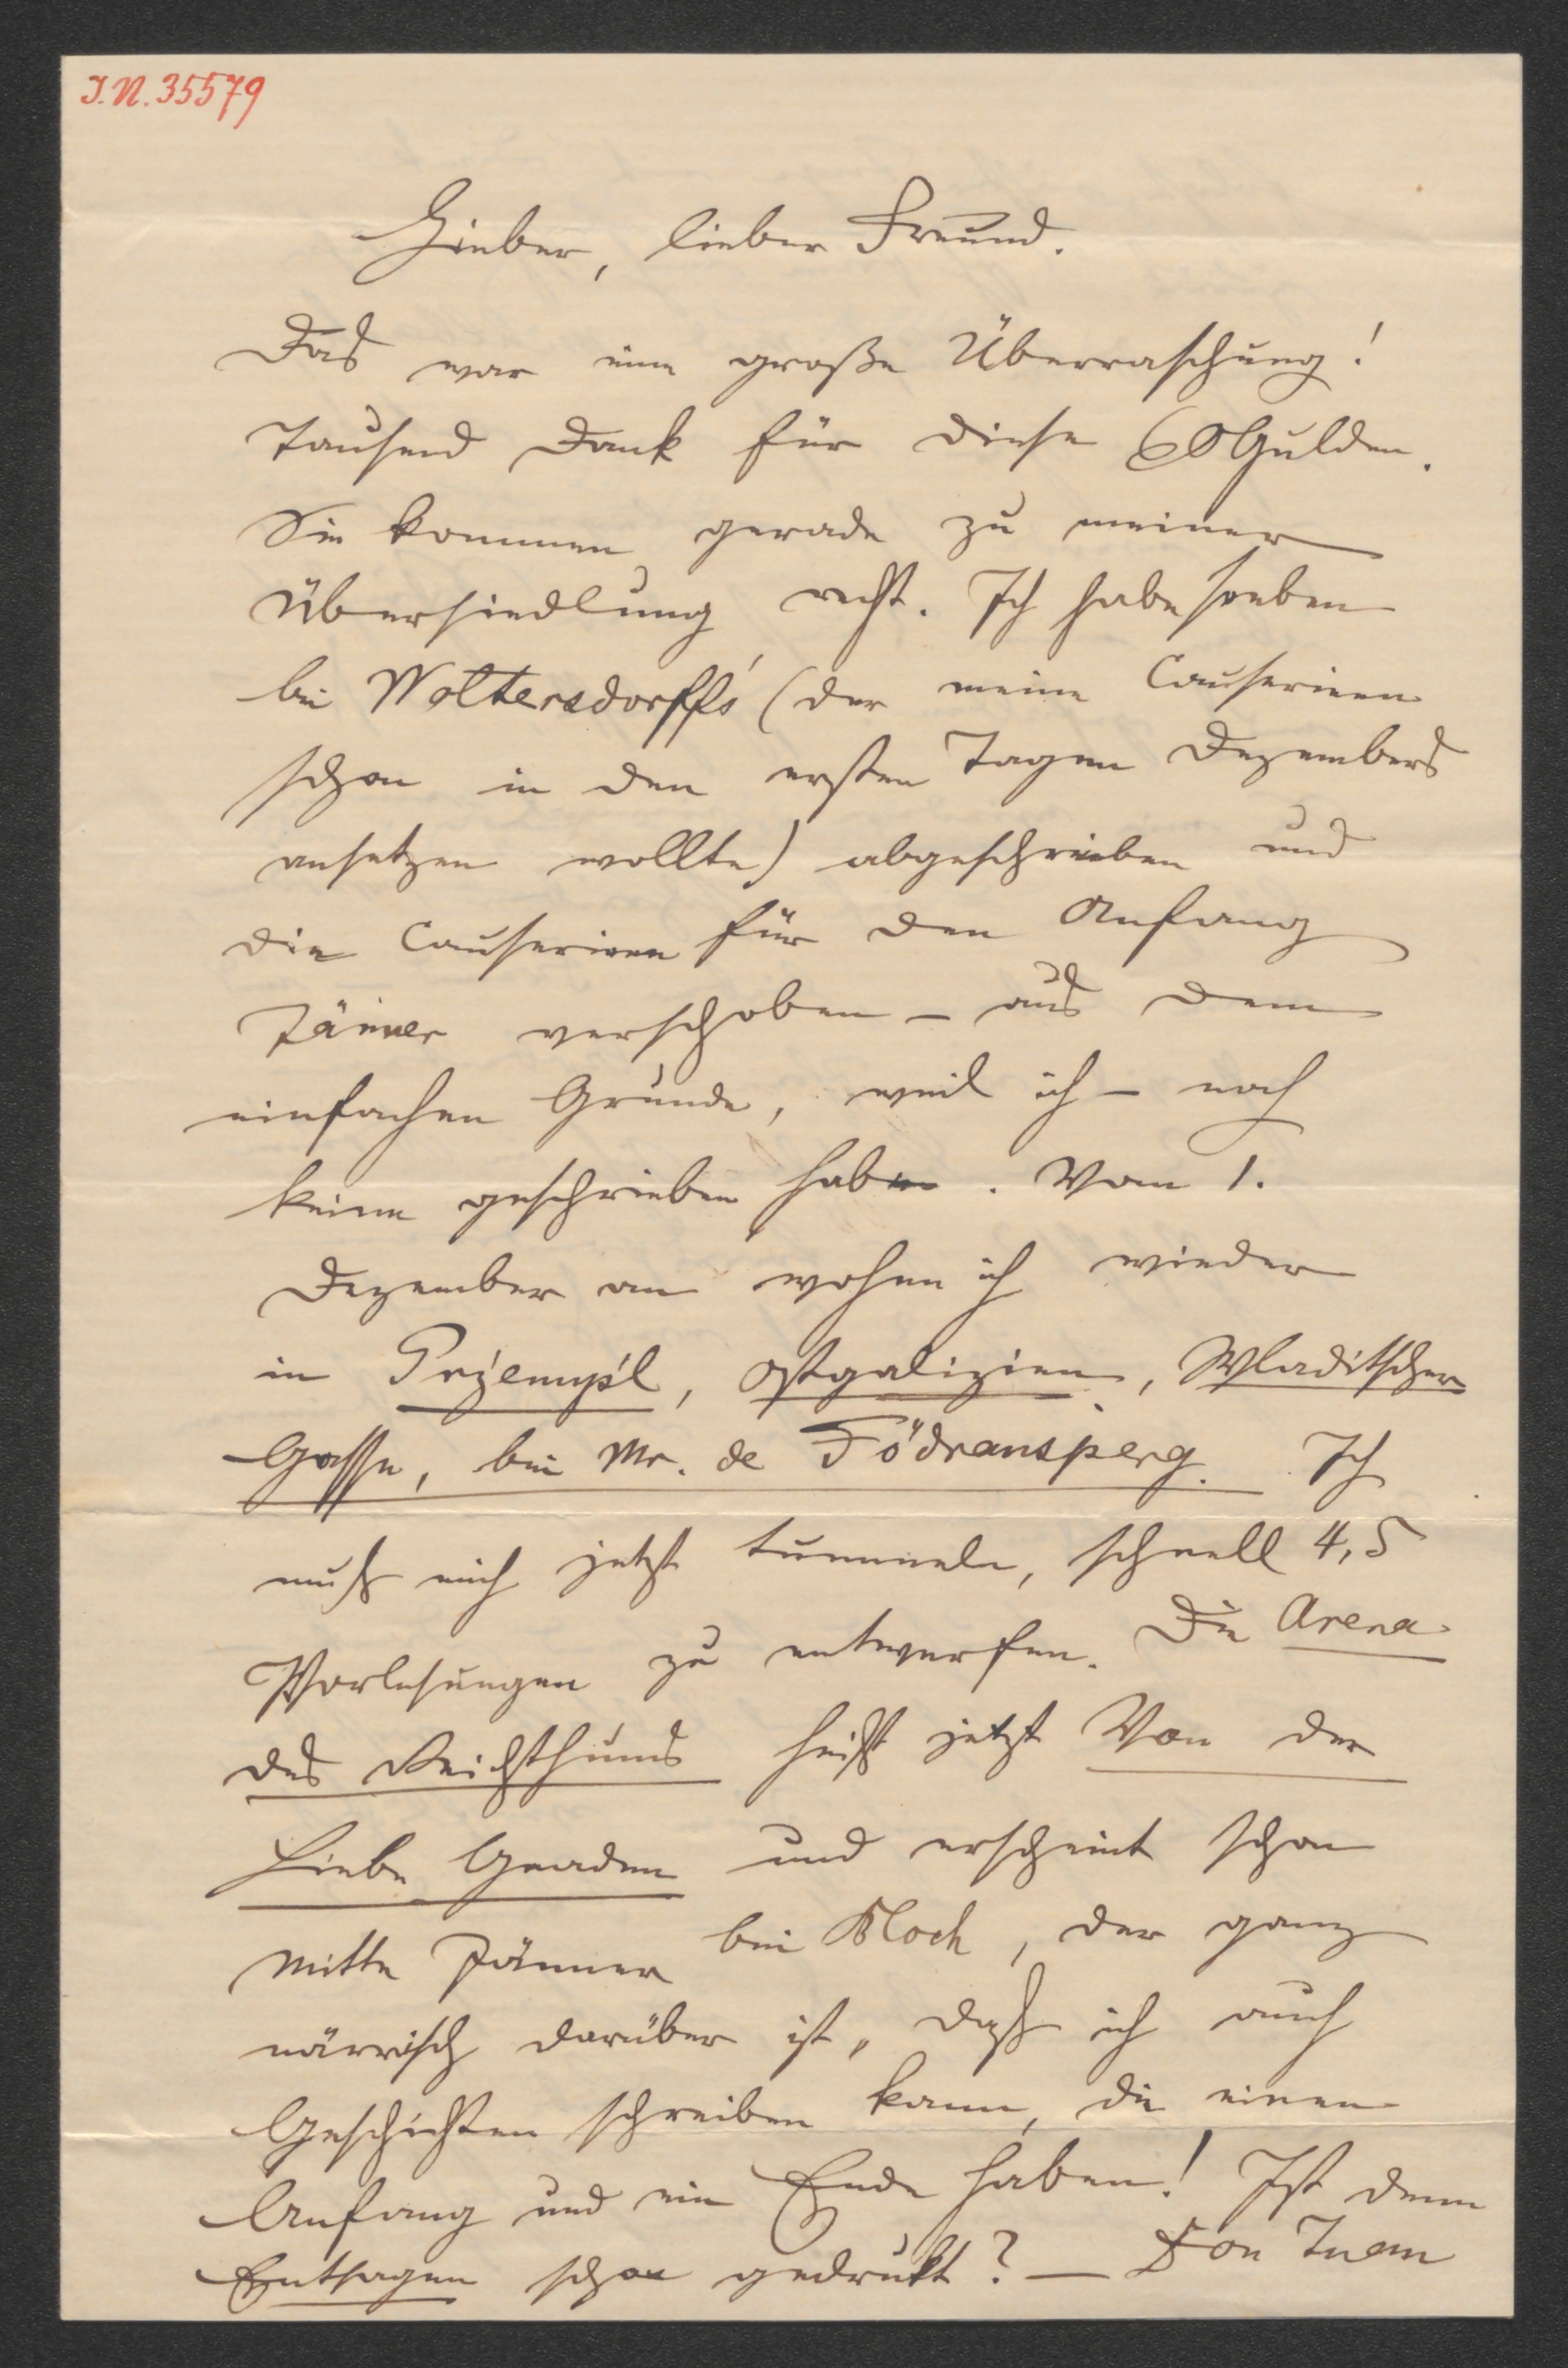 J.N. 35579
Lieber, lieber Freund.
Das war eine große Überraschung!
Tausend Dank für diese 60 Gulden.
Sie kommen gerade zu meiner
Übersiedlung recht. Ich habe soeben
bei Woltersdorff's (der meine Causerieen
schon in den ersten Tagen Dezembers
ansetzen wollte) abgeschrieben und
die Causerieen für den Anfang
Jänner verschoben – aus dem
einfachen Grunde, weil ich – noch
keine geschrieben habe. Vom 1.
Dezember an wohne ich wieder
in Pržemyśl, Ostgalizien, Wladitscher
Gasse, bei Mr. de Födransperg. Ich
muß mich jetzt tummeln, schnell 4, 5
Vorlesungen zu entwerfen. Die Arena
des Reichthums heißt jetzt Von der
Liebe Gnaden und erscheint schon
Mitte Jänner bei Bloch, der ganz
närrisch darüber ist, daß ich auch
Geschichten schreiben kann, die einen
Anfang und ein Ende haben! Ist denn
Entsagen schon gedrukt? – Don Juan